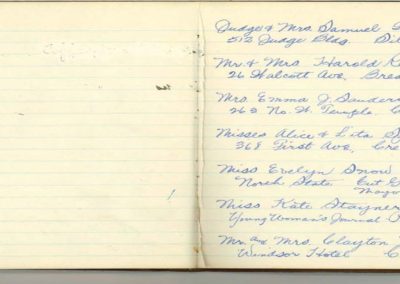 Judge & Mrs. Samuel
512 Judge Bldg.
Mr. & Mrs. Harold
26 Walcott Ave,
Mrs. Emma J. Sanders
263 No. W. Temple.
Misses Alice & Lita
368 First Ave,
Miss Evelyn Snow
North State
Miss Kate Stayner
Young Woman's Journal
Mr. and Mrs. Clayton
Windsor Hotel